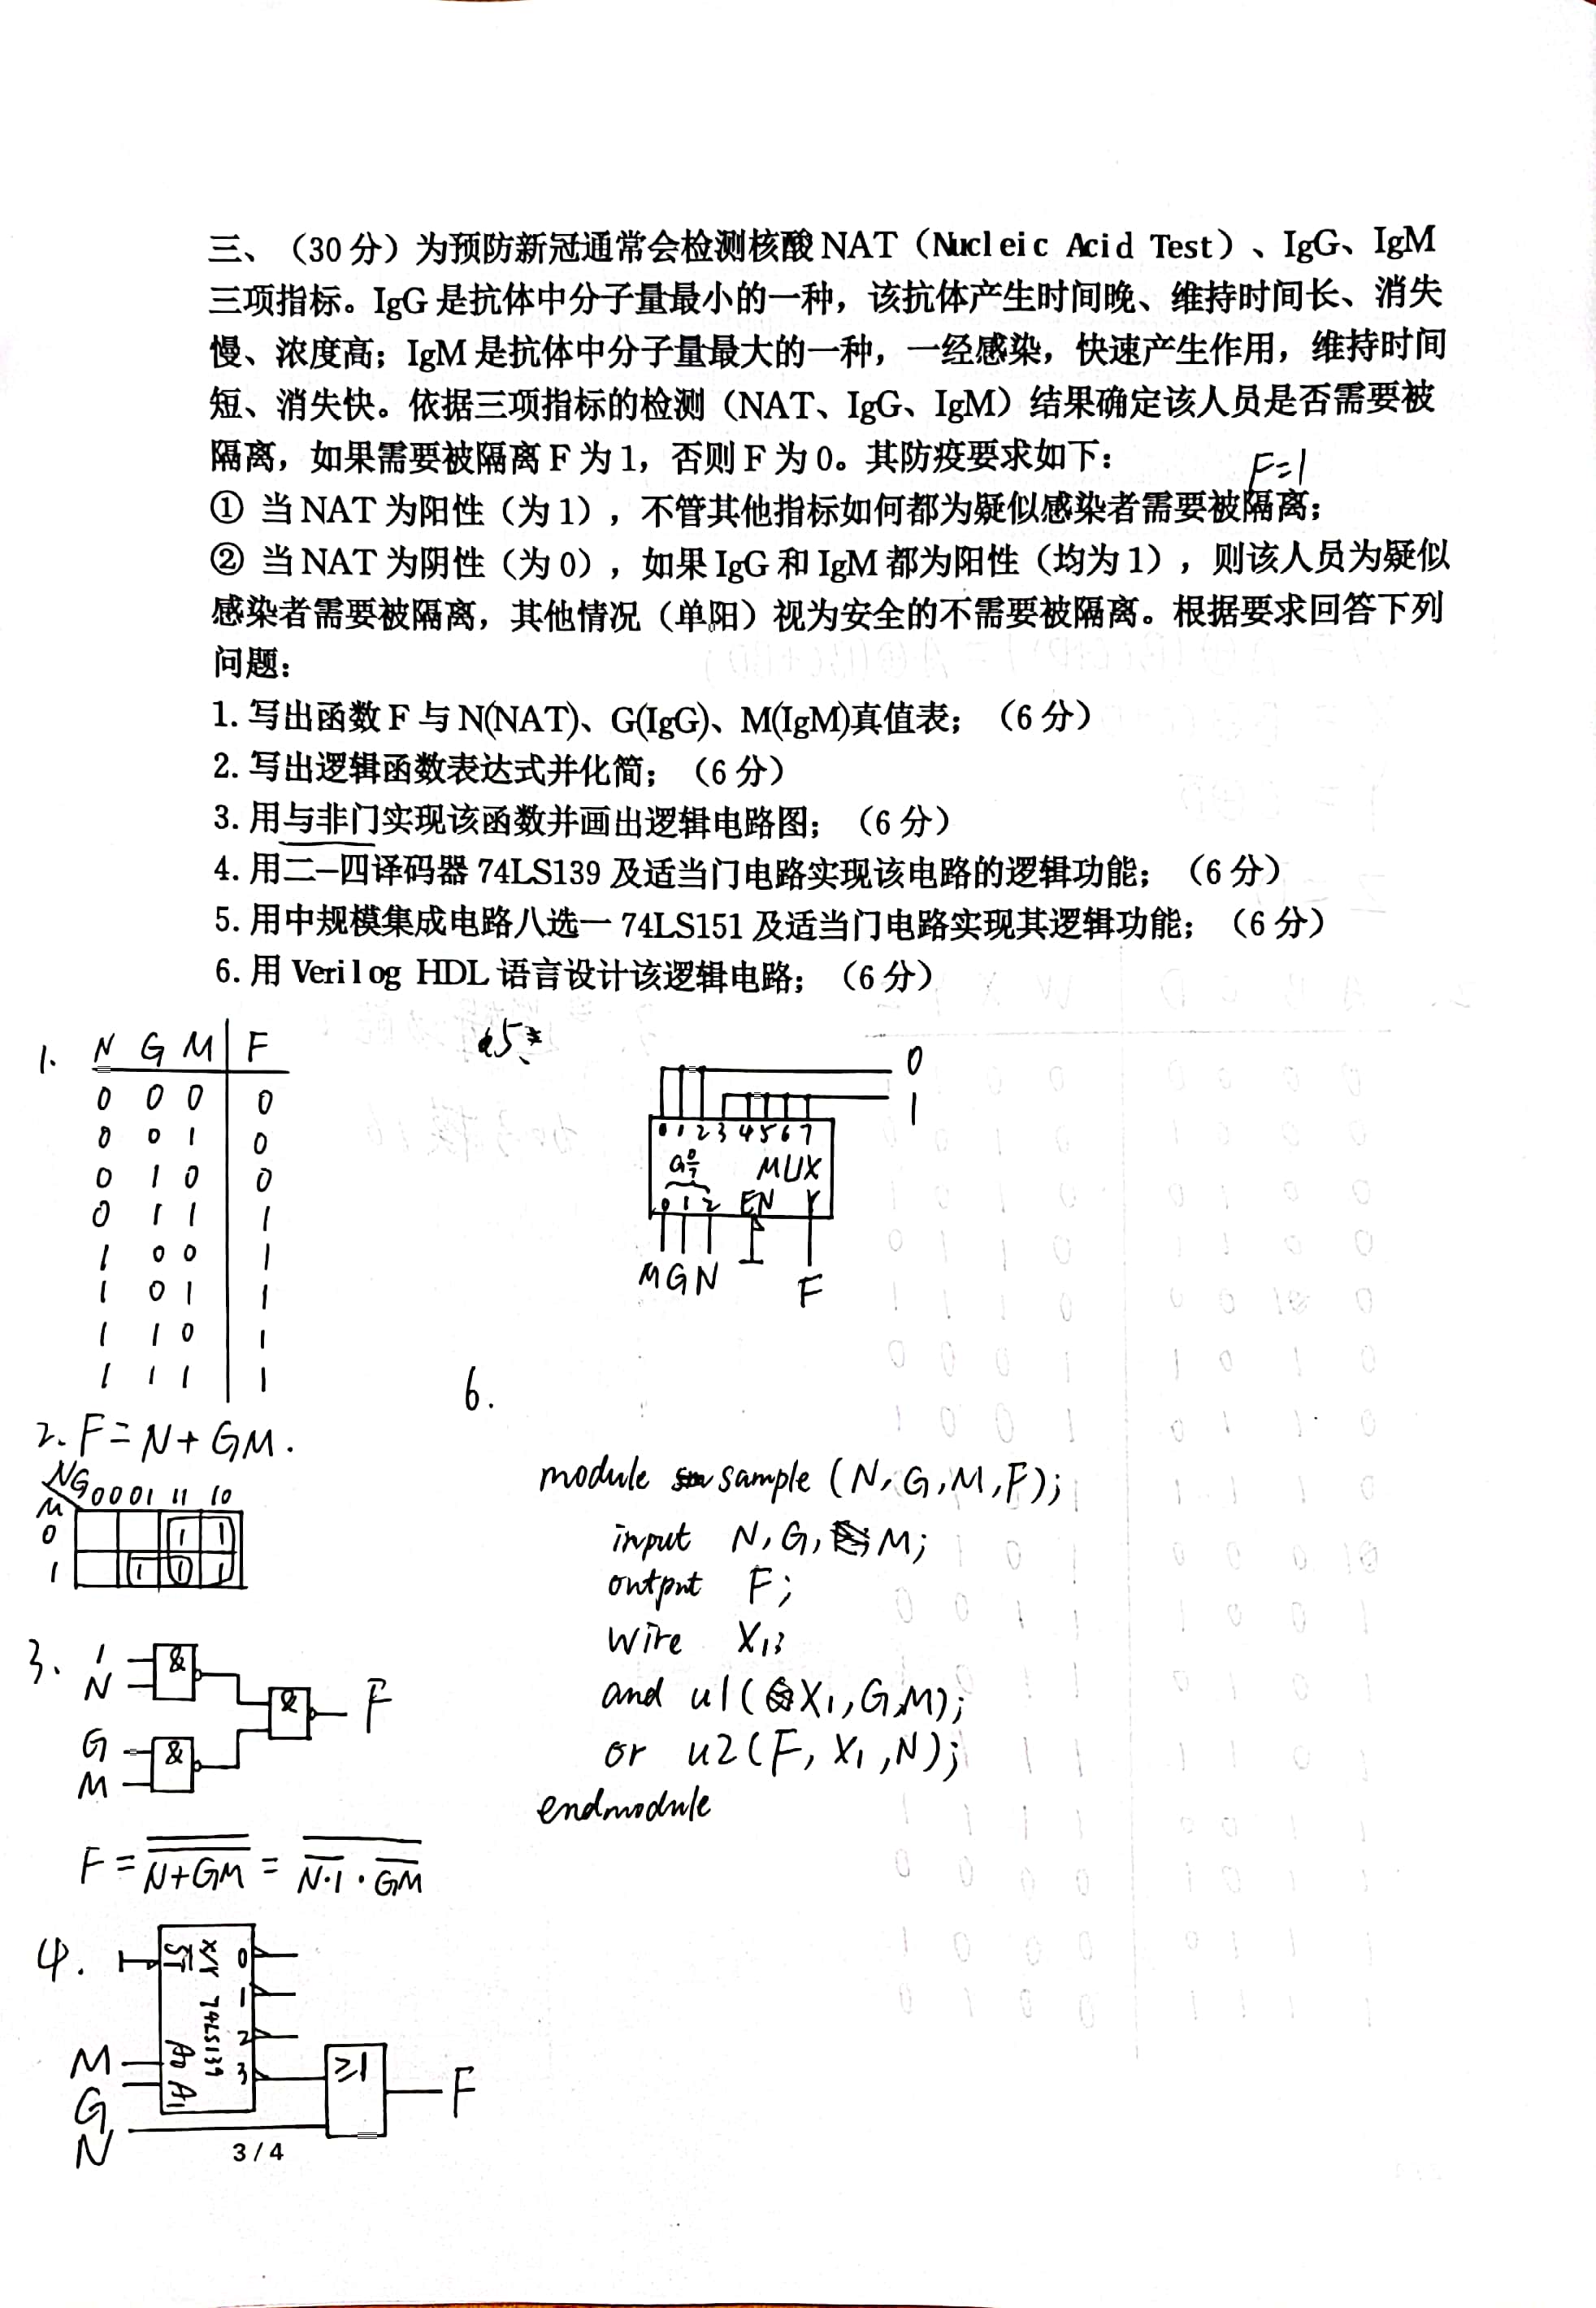 三、（30分）为预防新冠通常会检测核酸NAT（Nucleic Acid Test）、IgG、IgM
三项指标。IgG是抗体中分子量最小的一种，该抗体产生时间晚、维持时间长、消失
慢、浓度高；IgM是抗体中分子量最大的一种，一经感染，快速产生作用，维持时间
短、消失快。依据三项指标的检测（NAT、IgG、IgM）结果确定该人员是否需要被
隔离，如果需要被隔离F为1，否则F为0。其防疫要求如下：
F=1
① 当NAT为阳性（为1），不管其他指标如何都为疑似感染者需要被隔离；
② 当NAT为阴性（为0），如果IgG和IgM都为阳性（均为1），则该人员为疑似
感染者需要被隔离，其他情况（单阳）视为安全的不需要被隔离。根据要求回答下列
问题：
1. 写出函数F与N(NAT)、G(IgG)、M(IgM)真值表；（6分）
2. 写出逻辑函数表达式并化简；（6分）
3. 用与非门实现该函数并画出逻辑电路图；（6分）
4. 用二—四译码器74LS139及适当门电路实现该电路的逻辑功能；（6分）
5. 用中规模集成电路八选一74LS151及适当门电路实现其逻辑功能；（6分）
6. 用Verilog HDL语言设计该逻辑电路；（6分）
1. N G M F
0 0 0 0
0 0 1 0
0 1 0 0
0 1 1 1
1 0 0 1
1 0 1 1
1 1 0 1
1 1 1 1
2. F=N+GM.
NG 00 01 11 10
M
0 1 1
1 1 1 1
3. 1
N
& & F
G
M
&
F = \overline{\overline{N+GM}} = \overline{\overline{N·1}·\overline{GM}}
4. ST X/Y 74LS139
0
1
2
3
A0 A1
M
G
N
≥1 F
5.
0
1
0 1 2 3 4 5 6 7
G 0/7 MUX
0 1 2 EN Y
M G N F
6.
module sample (N,G,M,F);
input N,G,M;
output F;
wire X1;
and u1(X1,G,M);
or u2(F,X1,N);
endmodule
3 / 4